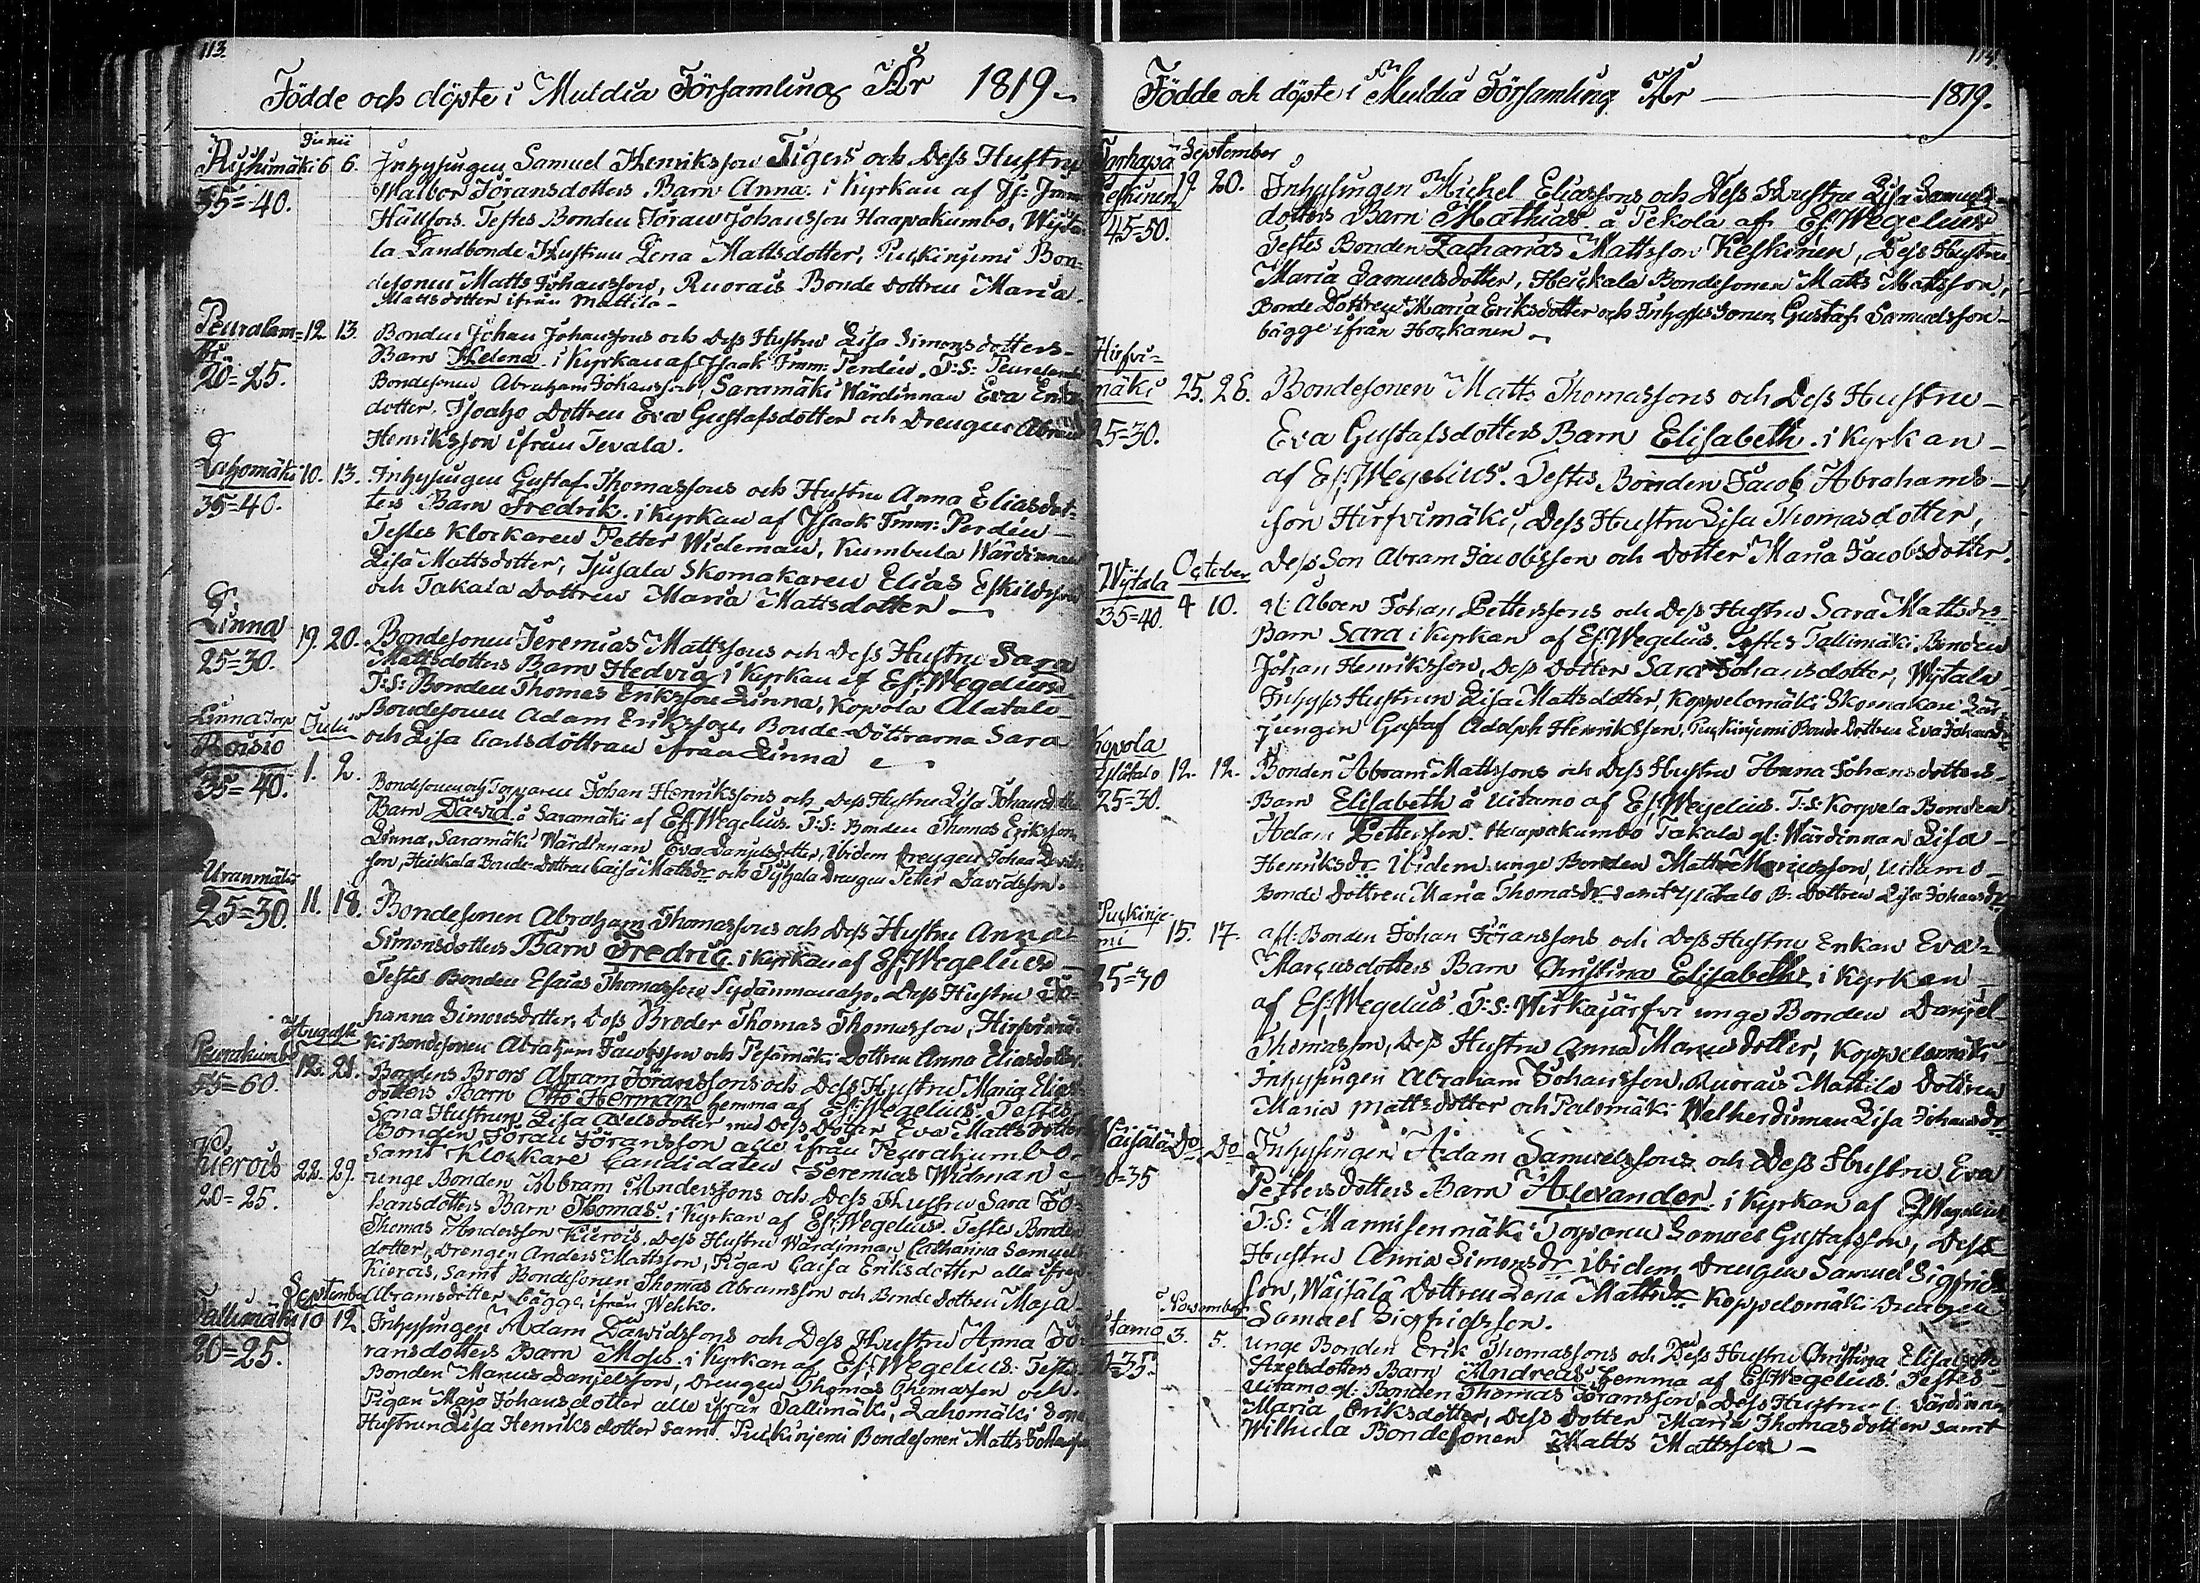 113.
Födde och döpte i Muldia Församling År 1819
Junii
6. 6. Inhysingen Samuel Henriksson Tigers och Dess Hustru
35=40. Walbor Jöransdotters Barn Anna i Kyrkan af
Testes Bonden Jöran Johansson Haapakumbo,
la Landbonde Hustrun Lena Mattsdotter, Puckinjemi Bon=
desonen Matts Johansson, Ruorais Bonde dottren Maria
Mattsdotter ifrån Mattila
12. 13. Bonden Johan Johanssons och Dess Hustru Lisa Simonsdotters
Barn Helena i Kyrkan af Isaak Imm: Perdén. T:S:
20=25. Bondesonen Abraham Johansson, Saramäki Wärdinnan Eva
dotter, Isoaho Dottren Eva Gustafsdotter och Drengen
Henriksson ifrån Tevala.
Lahomäki 10. 13. Inhysingen Gustaf Thomassons och Hustru Anna Eliasdot=
35=40. ters Barn Fredrik i Kyrkan af Isaak Imm: Perdén
Testes Klockaren Petter Wideman, Kumbula Wärdinnan
Lisa Mattsdotter, Skomakaren Elias Eskildsson
och Takala Dottren Maria Mattsdotter
Linna 19. 20. Bondesonen Jeremias Mattssons och Dess Hustru Sara
25=30. Mattsdotters Barn Hedvig i Kyrkan af Ef: Wegelius
T:S: Bonden Thomas Eriksson Linna, Kopola Alatalo
Bondesonen Adam Eriksson, Bonde-Döttrarna Sara
och Lisa Carlsdöttrar ifrån Linna
Linna Torp Julii
Roisio 1. 2. Bondesonen och Torparen Johan Henrikssons och Dess Hustru Lisa
35=40. Barn David å Saramäki af Ef: Wegelius. T:S: Bonden Thomas Eriksson
Linna, Saramäki Wärdinnan Eva Danjelsdotter, ibidem Drengen Johan
son, Heickala Bonde-Dottren Caisa Mattsdr och Drengen Petter Davidsson.
Uranmäki 11. 18. Bondesonen Abraham Thomassons och Dess Hustru Anna
25=30. Simonsdotters Barn Fredric i Kyrkan af Ef: Wegelius
Testes Bonden Esaias Thomasson Sydänmanaho, Dess Hustru Jo=
hanna Simonsdotter, Dess Broder Thomas Thomasson, Hirfvimä=
ki Bondesonen Abraham Jacobsson och Pesämäki Dottren Anna Eliasdotter
Augusti
Peurakumbo 12. 21. Bondens Brors Abram Jöranssons och Dess Hustru Maria Elias
55=60. dotters Barn Otto Herman hemma af Ef: Wegelius. Testes
Sona Hustrun Lisa Axelsdotter med Dess Dotter Eva Mattsdotter
Bonden Jöran Jöransson alla ifrån Peurakumbo
samt Klockare Candidaten Jeremias Widman
Kierois 22. 29. unge Bonden Abram Anderssons och Dess Hustru Sara Jo=
20=25. hansdotters Barn Thomas i Kyrkan af Ef: Wegelius. Testes Bonden
Thomas Andersson Kierois, Dess Hustru Wärdinnan Catharina Samuels
dotter, Drengen Anders Mattsson, Pigan Caisa Eriksdotter alla ifrån
Kierois, samt Bondesonen Thomas Abramsson och Bonde dottren Maja
September Abramsdotter bägge ifrån Wehko.
Tallimäki 10 12 Inhysingen Adam Davidssons och Dess Hustru Anna Jö=
20=25. ransdotters Barn Moses i Kyrkan af Ef: Wegelius. Testes
Bonden Marcus Danjelsson, Drengen Thomas Thomasson och
Pigan Maja Johansdotter alla ifrån Tallimäki, Lahomäki Sona
Hustrun Lisa Henriksdotter samt Puckinjemi Bondesonen Matts Johansson
114.
Födde och döpte i Muldia Församling År 1819.
September
Keskinen 19. 20. Inhysingen Michel Eliassons och Dess Hustru Lisa Samuels
45=50. dotters Barn Mathias å Tekola af Ef: Wegelius
Testes Bonden Zacharias Mattsson Keskinen, Dess Hustru
Maria Samuelsdotter, Heickala Bondesonen Matts Mattsson,
Bonde Dottren Maria Eriksdotter och Inhyses Sonen Gustaf Samuelsson
bägge ifrån Hockanen
Hirfvi=
mäki 25. 26. Bondesonen Matts Thomassons och Dess Hustru
25=30. Eva Gustafsdotters Barn Elisabeth i Kyrkan
af Ef: Wegelius. Testes Bonden Jacob Abrahams
son Hirfvimäki, Dess Hustru Lisa Thomasdotter,
Dess Son Abram Jacobsson och Dotter Maria Jacobsdotter.
October
Wijtala 4 10. gl: Aboen Johan Petterssons och Dess Hustru Sara Mattsdrs
35=40. Barn Sara i Kyrkan af Ef: Wegelius. Testes Tallimäki Bonden
Johan Henriksson, Dess Dotter Sara Johansdotter, Wijtala
Inhyses Hustrun Lisa Mattsdotter, Koppelomäki Skomakare Lär
jungen Gustaf Adolph Henriksson, Puckinjemi Bonde Dottren Eva
Kopola
Ylätalo 12. 12. Bonden Abram Mattssons och Dess Hustru Anna Johansdotters
25=30. Barn Elisabeth å Uitamo af Ef: Wegelius. T:S: Korpela Bonden
Adam Pettersson. Haapakumbo Takala gl: Wärdinnan Lisa
Henriksdr ibidem unge Bonden Matts Mariusson, Uitamo
Bonde Dottren Maria Thomasdr samt Ylätalo B: Dottren Lisa Johansdr
Puckinje-
mi 15. 17. afl: Bonden Johan Jöranssons och Dess Hustru Enkan Eva
25=30 Marcusdotters Barn Christina Elisabeth i Kyrkan
af Ef: Wegelius. T:S: Wirkajärfvi unge Bonden Danjel
Thomasson, Dess Hustru Anna Marcusdotter, Koppelomäki
Inhysingen Abraham Johansson, Ruorais Mattila Dottren
Maria Mattsdotter och Palomäki Lisa Johansdr
Wäisälä Do Do Inhysingen Adam Samuelssons och Dess Hustru Eva
30=35 Pettersdotters Barn Alexander i Kyrkan af Ef: Wegelius
T:S: Mannisenmäki Torparen Samuel Gustafsson, Dess
Hustru Anna Simonsdr ibidem Drengen Samuel Sigfrids
son, Wäisälä Dottren Lena Mattsdr Koppelomäki Drengen
November Samuel Sigfridsson.
3. 5. unge Bonden Erik Thomassons och Dess Hustru Christina Elisabeth
Axelsdotters Barn Andreas hemma af Ef: Wegelius. Testes
Uitamo gl: Bonden Thomas Jöransson, Dess Hustru Wärdinnan
Maria Eriksdotter, Dess Dotter Maria Thomasdotter samt
Wilhula Bondesonen Matts Mattsson